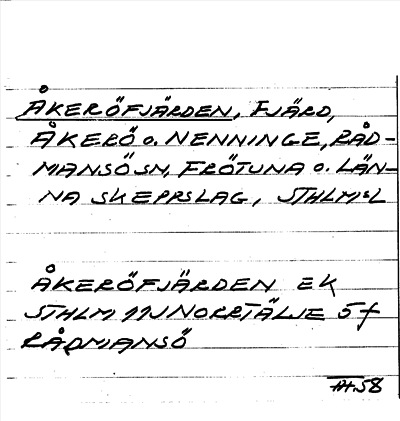 ÅKERÖFJÄRDEN, FJÄRD,
ÅKERÖ O. NENNINGE, RÅD-
MANSÖ SN, FRÖTUNA O. LÄN-
NA SKEPPSLAG, STHLMSL
ÅKERÖFJÄRDEN EK
STHLM 11J NORRTÄLJE 5f
RÅDMANSÖ
58